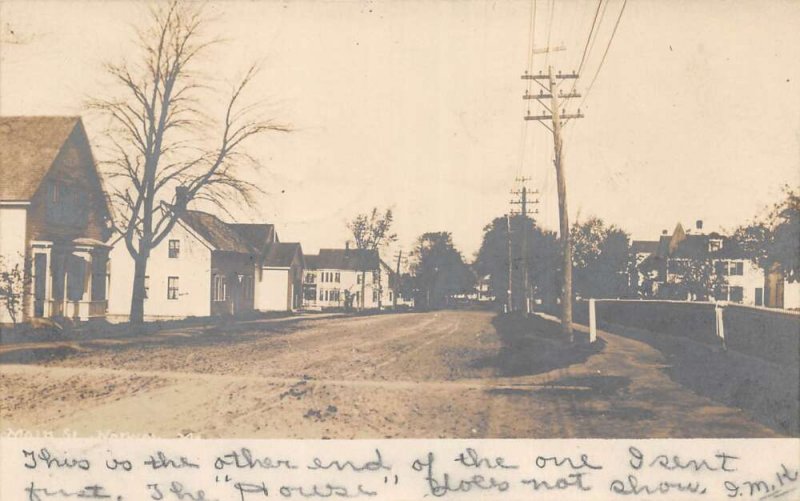 Main St. Norway, Me.
This is the other end of the one I sent
first. The "House" does not show. I.M.H.